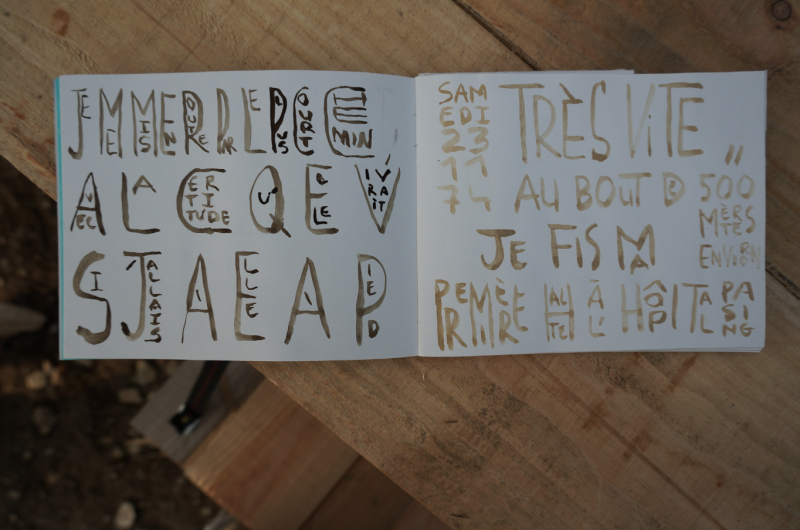 JE ME MIS EN ROUTE PAR LE PLUS COURT CHEMIN,
AVEC LA CERTITUDE QU'ELLE VIVRAIT
SI J'ALLAIS À ELLE À PIED
SAM
EDI
23
11
74
TRÈS VITE,,
AU BOUT DE 500 MÈTRES ENVIRON
JE FIS MA
PREMIÈRE HALTE À L'HÔPITAL PASING